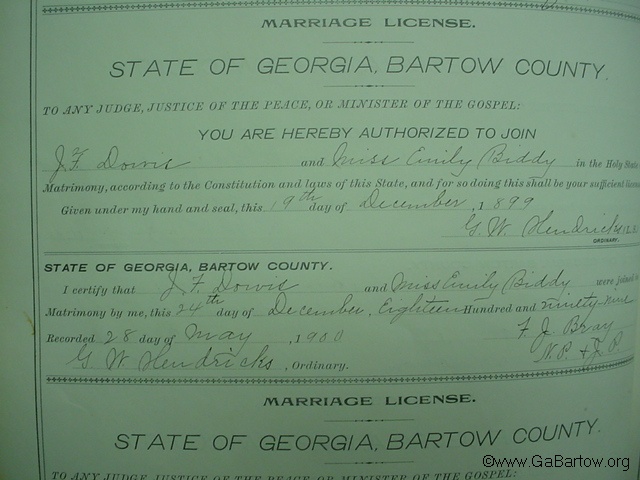 MARRIAGE LICENSE.
STATE OF GEORGIA, BARTOW COUNTY.
TO ANY JUDGE, JUSTICE OF THE PEACE, OR MINISTER OF THE GOSPEL:
YOU ARE HEREBY AUTHORIZED TO JOIN
J. F. Dowis and Miss Emily Biddy in the Holy State
Matrimony, according to the Constitution and laws of this State, and for so doing this shall be your sufficient license
Given under my hand and seal, this 19th day of December, 1899
G. W. Hendricks
ORDINARY.
STATE OF GEORGIA, BARTOW COUNTY.
I certify that J. F. Dowis and Miss Emily Biddy were joined in
Matrimony by me, this 24th day of December, Eighteen Hundred and ninety-nine
Recorded 28 day of May, 1900 F. J. Bray
G. W. Hendricks, Ordinary. N.P. + J.P.
MARRIAGE LICENSE.
STATE OF GEORGIA, BARTOW COUNTY.
TO ANY JUDGE, JUSTICE OF THE PEACE OR MINISTER OF THE GOSPEL:
©www.GaBartow.org